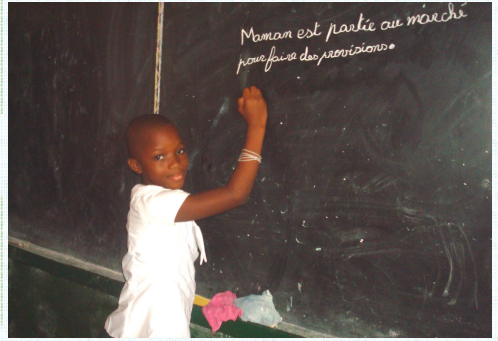 Maman est partie au marché
pour faire des provisions.